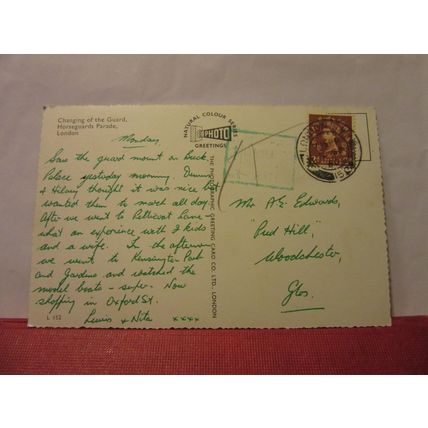 Changing of the Guard,
Horseguards Parade,
London
Monday
Saw the guard mount on Buck.
Palace yesterday morning.
& Hilary thought it was nice but
wanted them to march all day.
After we went to Petticoat Lane -
what an experience with 2 kids
and a wife. In the afternoon
we went to Kensington Park
and Gardens and watched the
model boats - super. Now
shopping in Oxford St.
Lewis & Nita xxxx
L 152
NATURAL COLOUR SERIES
PHOTO
GREETINGS
THE PHOTOGRAPHIC GREETING CARD CO. LTD., LONDON
LONDON
Mr A.E. Edwards,
"Pud Hill",
Woodchester,
Glos.